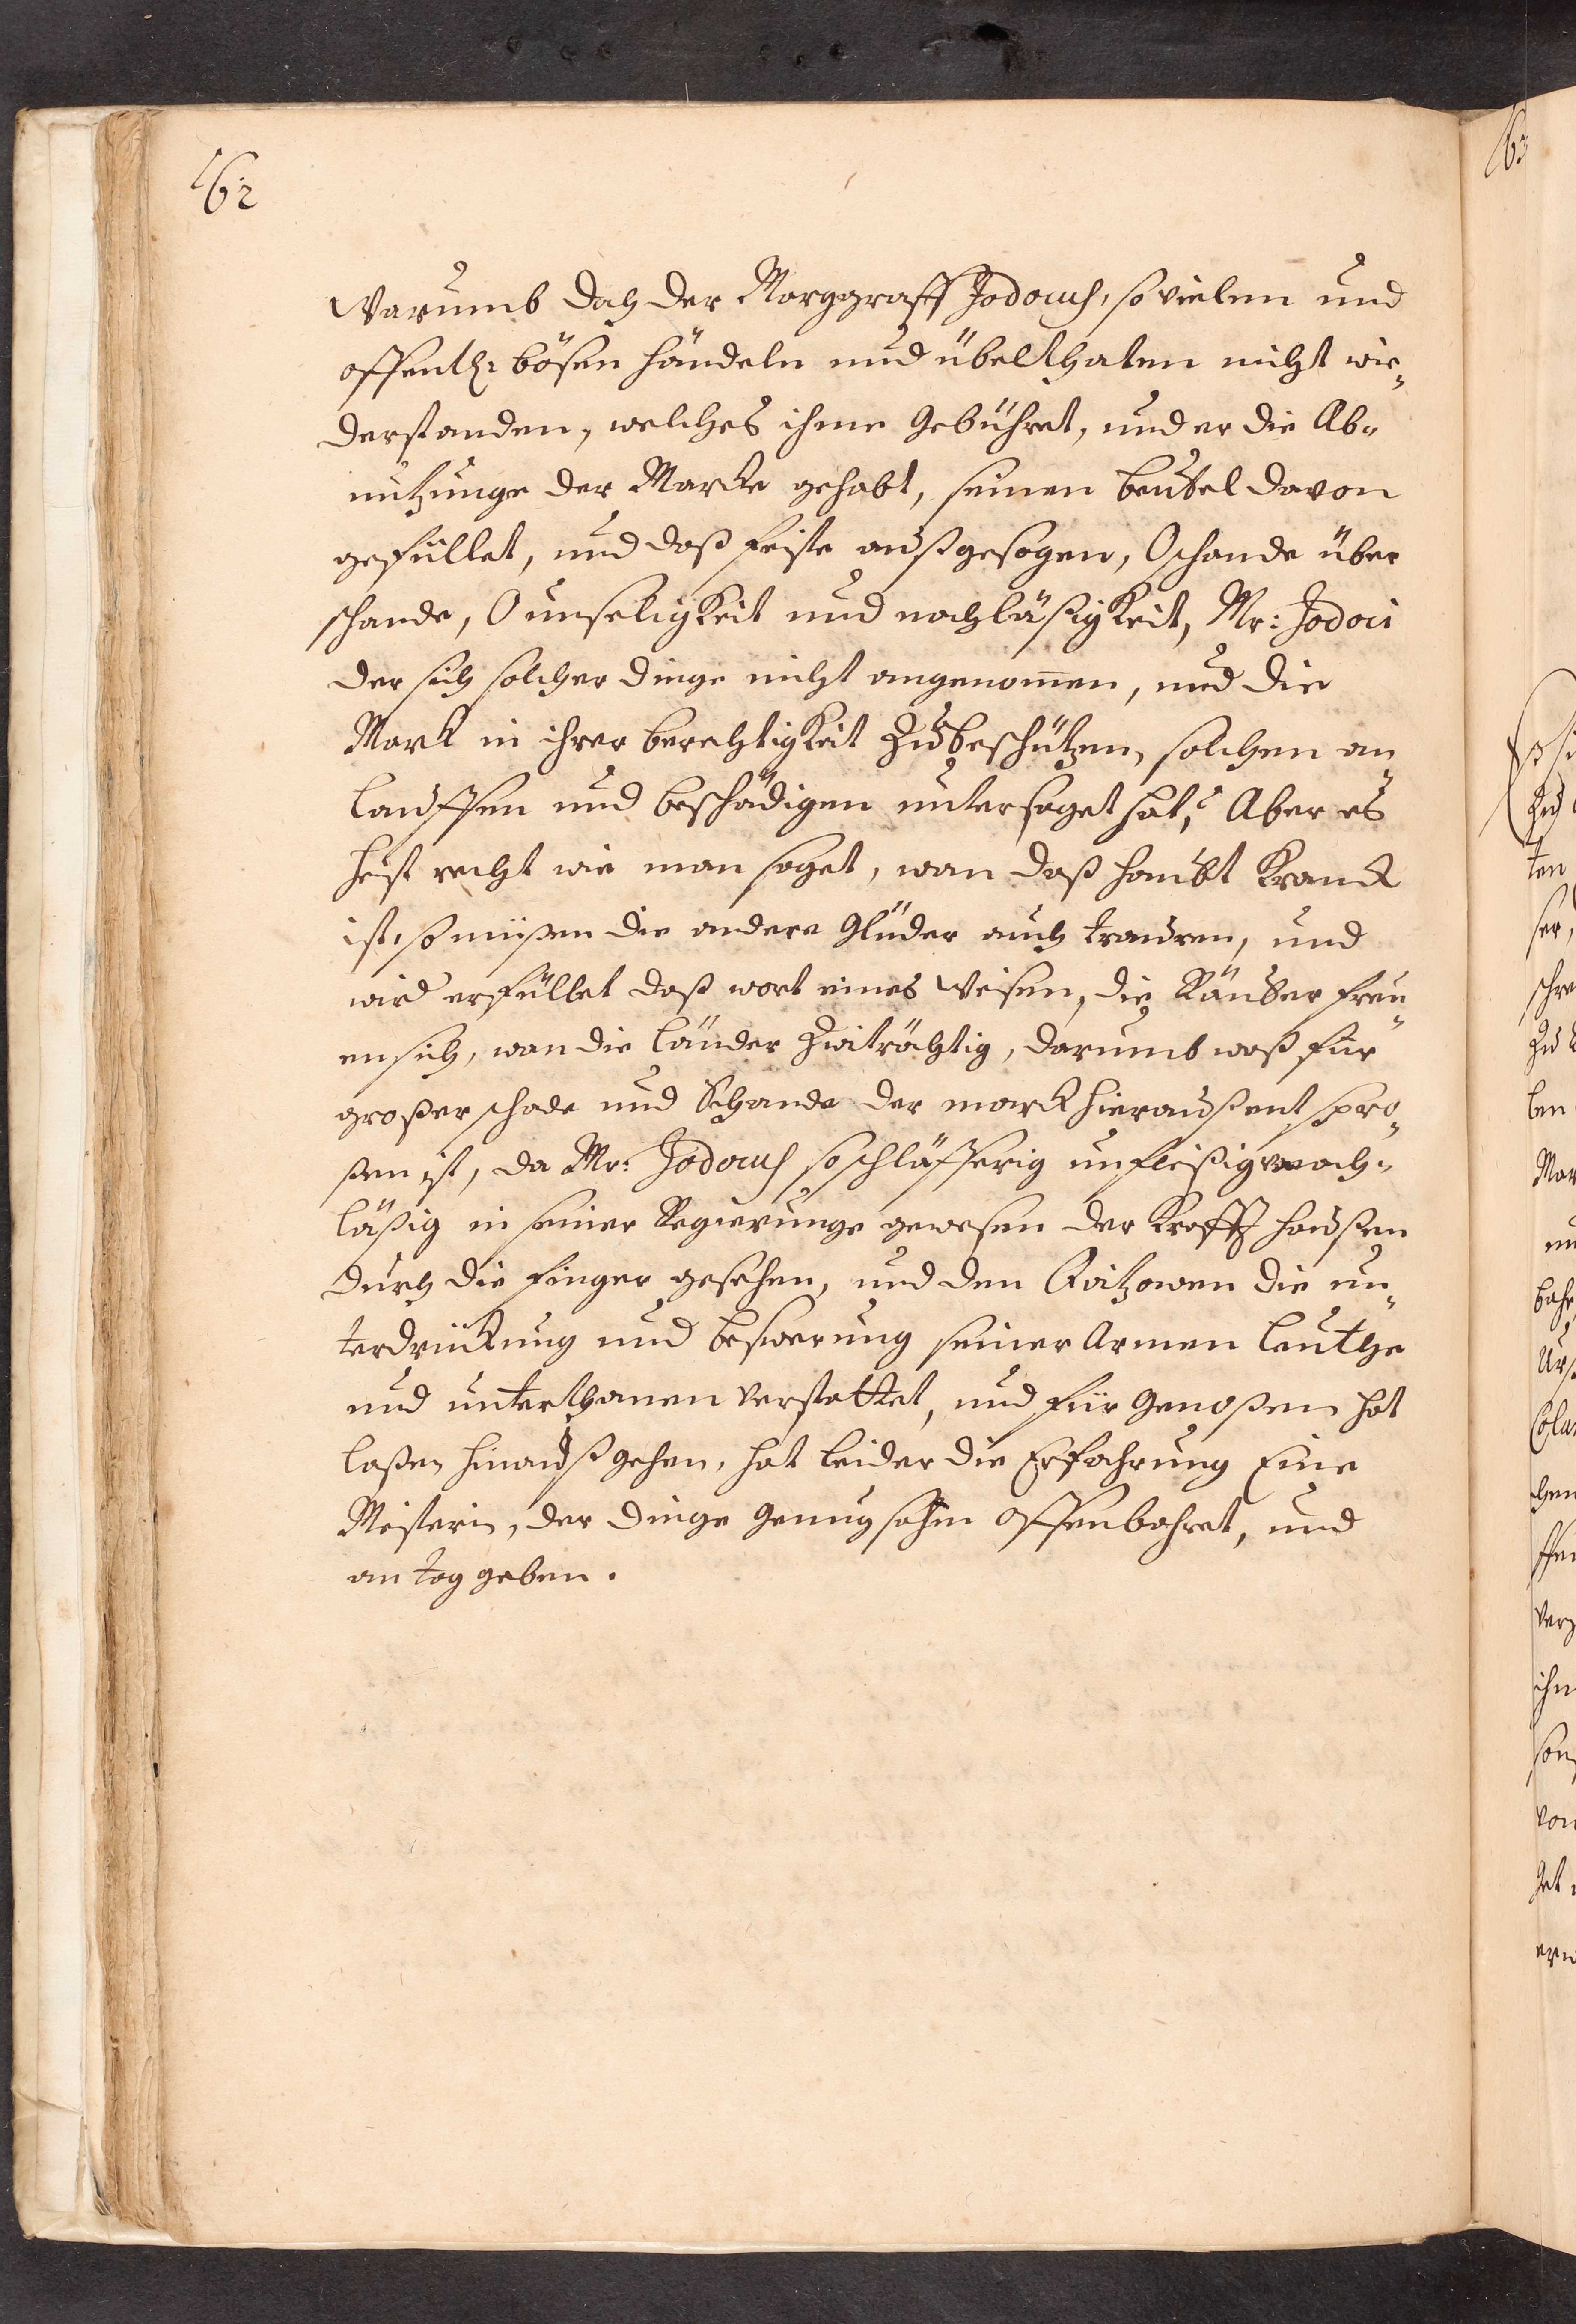 162
Warumb doch der Marggraff Jodocus, so vielen und
offentl: bösen händeln und übelthaten nicht wie„
derstanden, welches ihme Gebühret, und er die Ab„
nützunge der Marcke gehabt, seinen beutel davon
gefüllet, und daß feiste außgesogen, O schande über
schande, O unseligkeit und nachläßigkeit, Mr: Jodoci
der sich solcher dinge nicht angenom̄en, und die
Mark in ihrer berechtigkeit Zu beschützen, solchen an„
lauffen und beschädigen untersaget hat, Aber es
heist recht wie man saget, wan daß haubt kranck
ist, so müßen die andere Glieder auch trauren, und
wird erfüllet daß wort eines Weisen, die Räuber freu„
en sich, wan die Länder Zwiträchtig, darumb waß für
großer schade und Schande der marck hieraußentspro„
ßen ist, da Mr: Jodocus so schläfferig unfleißig nach„
läßig in seiner Regierunge gewesen der haußen
durch die finger gesehen, und den Qvitzowen die un„
terdrückung und beswerung seiner Armen leuthe
und unterthanen verstattet, und für Genoßen hat
laßen hinauß gehen, hat leider die Erfahrung Eine
Meisterin, der dinge Genugsahm offenbahret, und
an tag geben.
163